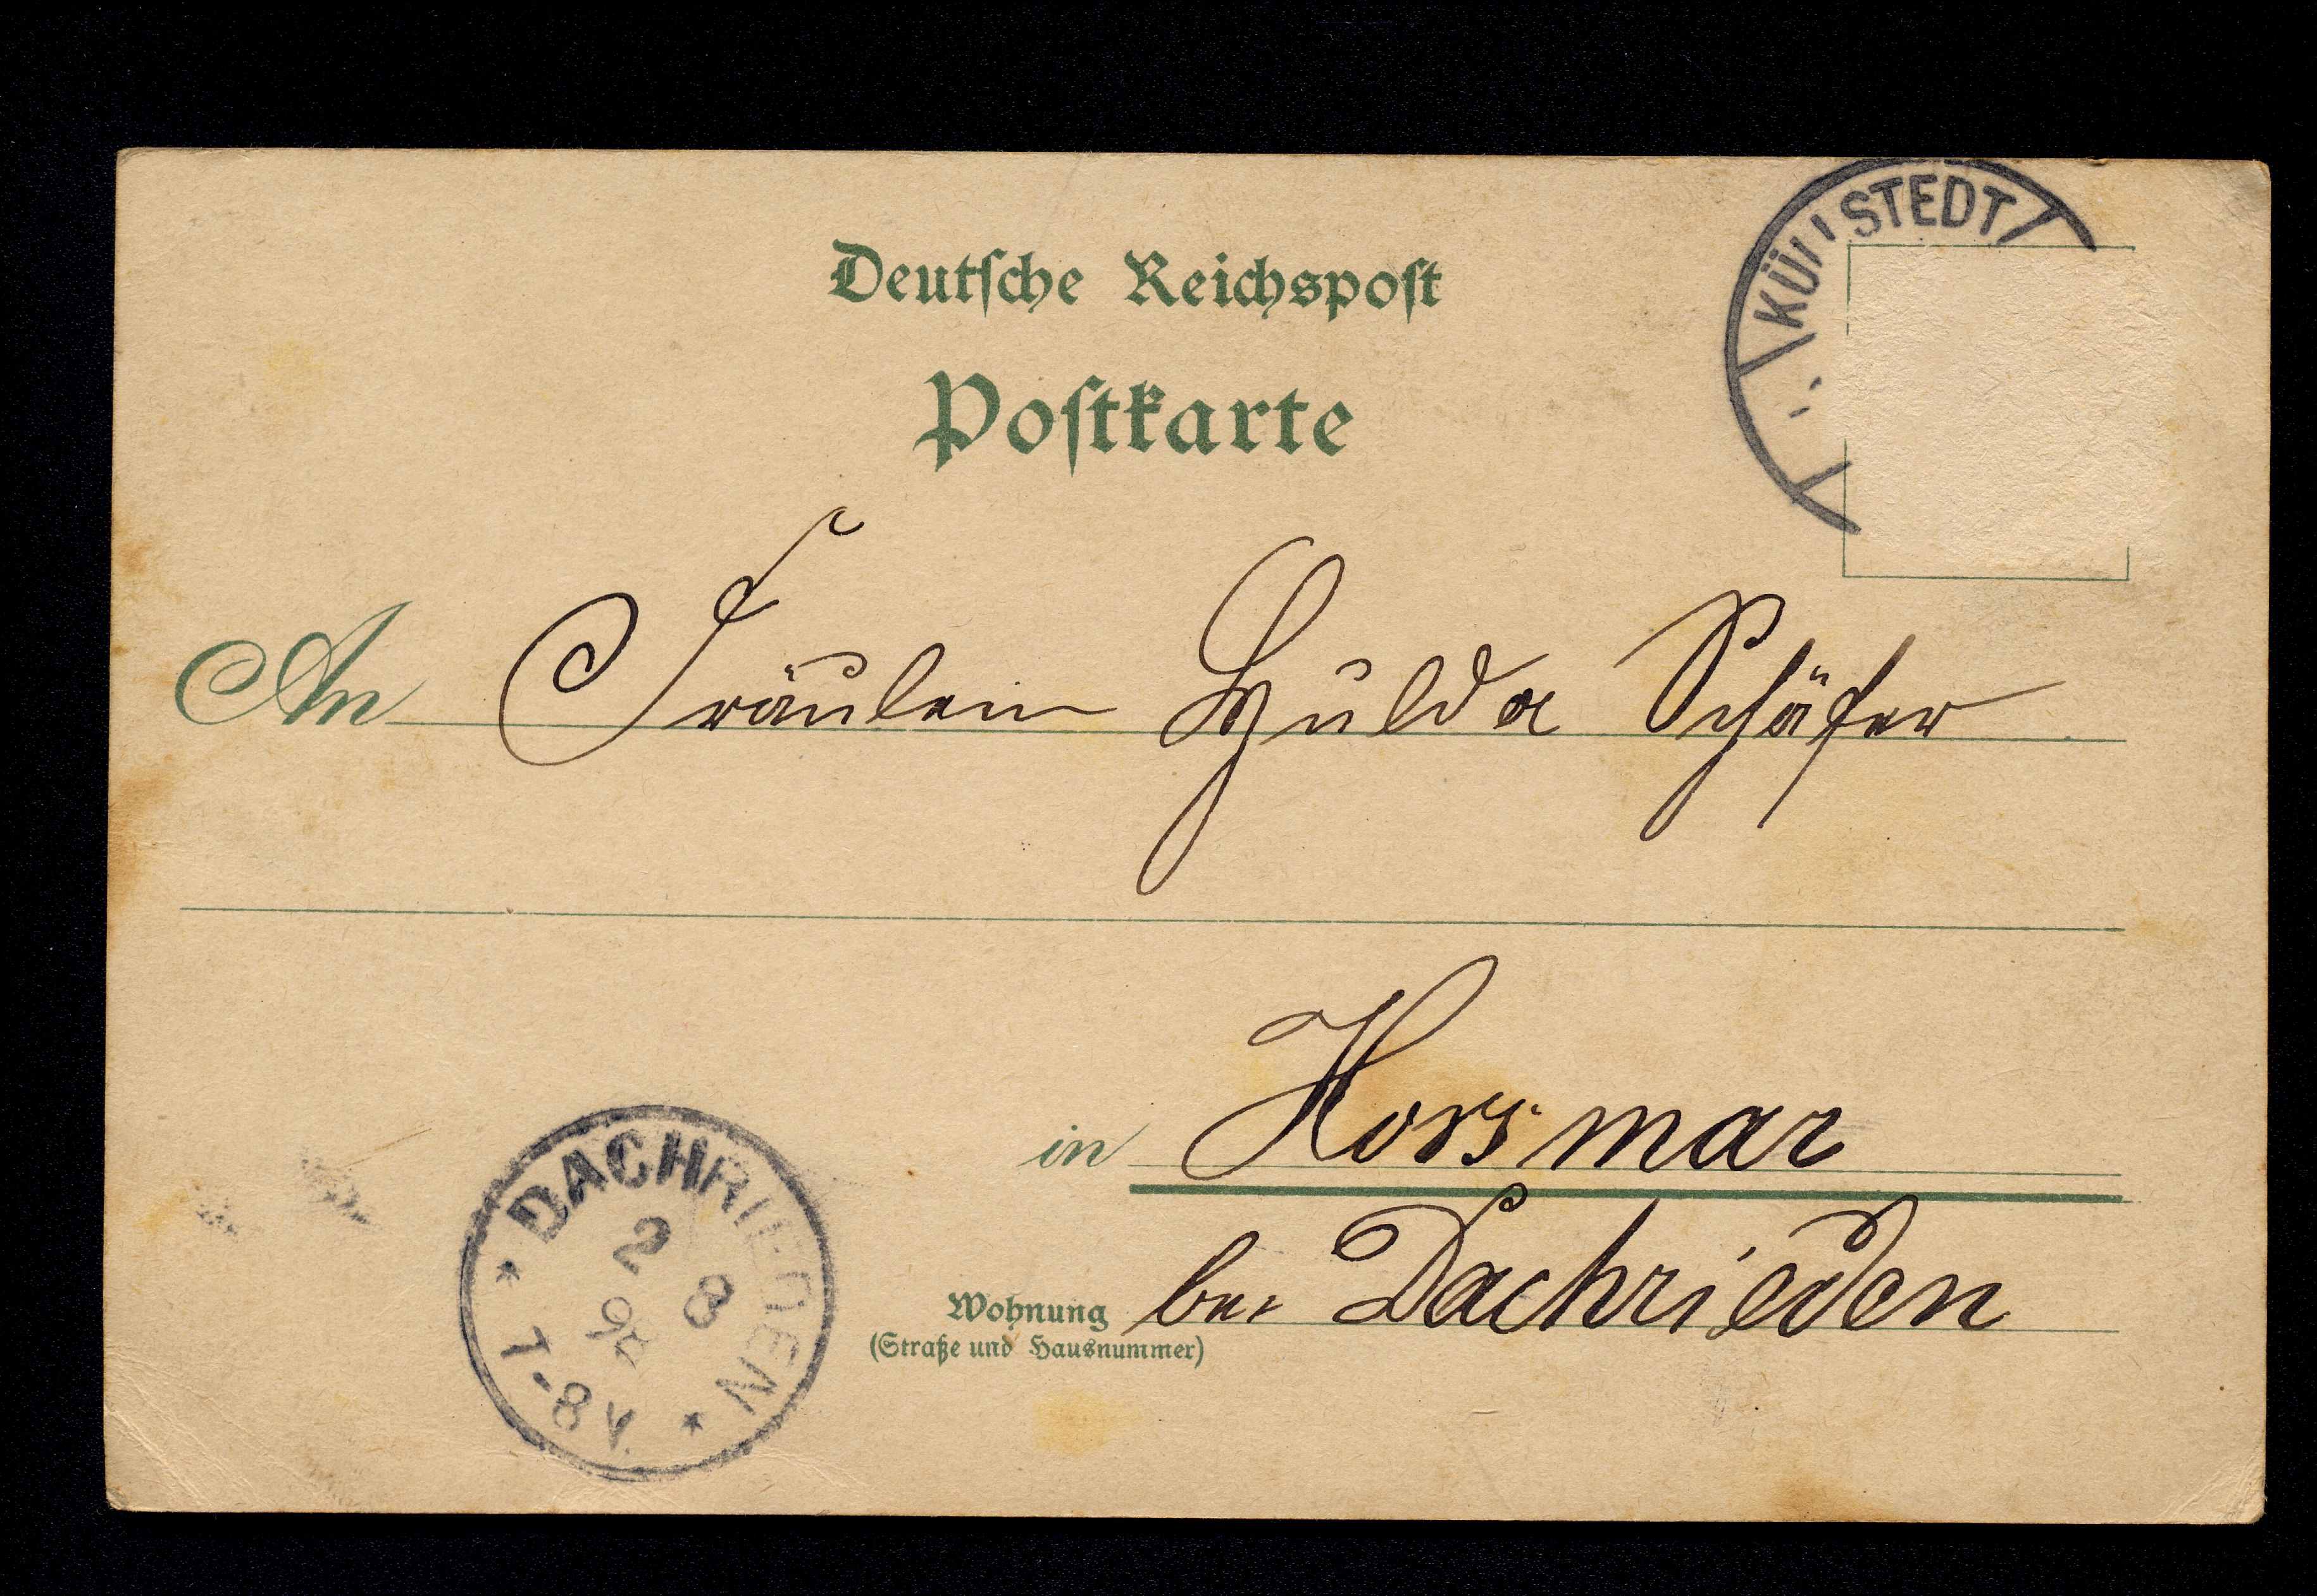 Deutsche Reichspost
Postkarte
KÜLLSTEDT
An Fräulein Hulda Schäfer
in Horsmar
Wohnung bei Dachrieden
(Straße und Hausnummer)
* DACHRIEDEN *
2
8
98
7-8 V.